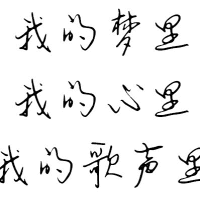 我的梦里
我的心里
我的歌声里